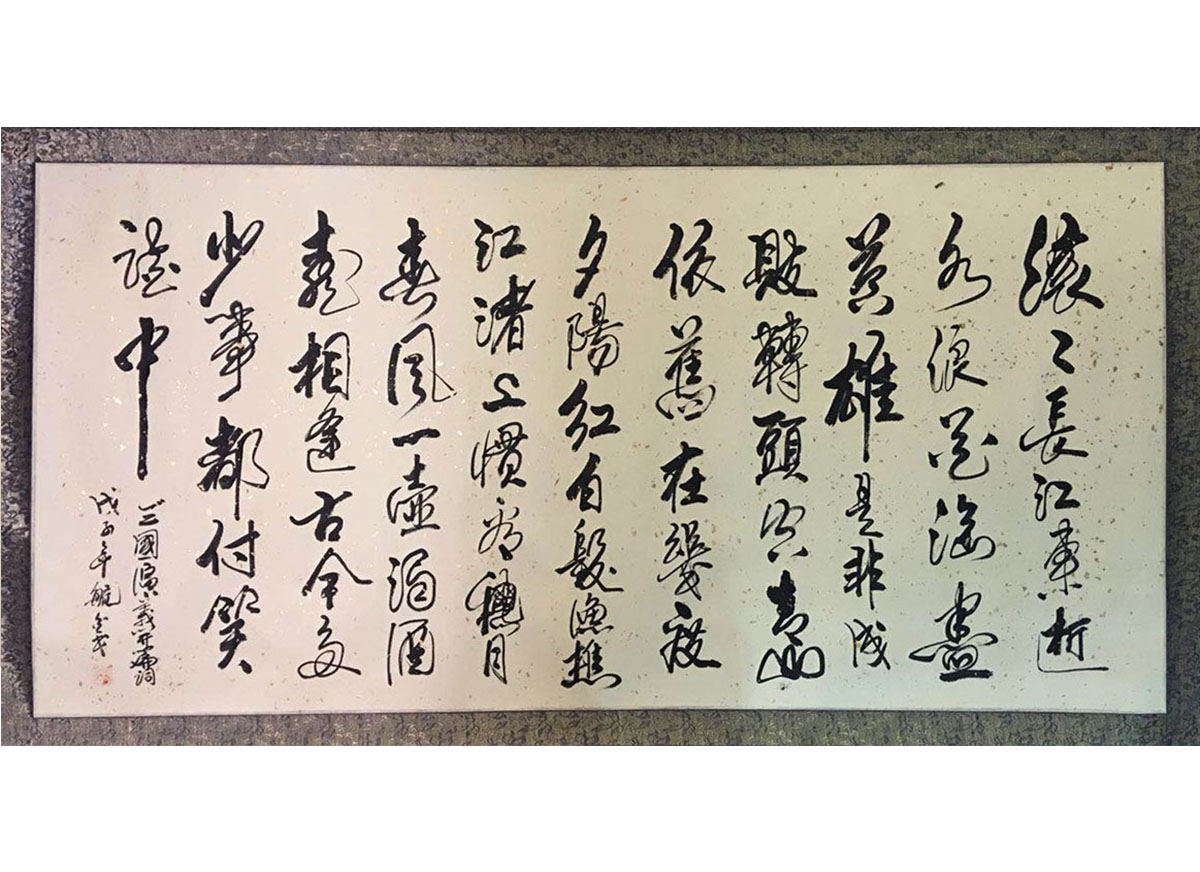 滚〻長江東逝
水浪花淘盡
英雄是非成
敗轉頭空青山
依舊在幾度
夕陽紅白髮漁樵
江渚上慣看穐月
春風一壺濁酒
喜相逢古今多
少事都付笑
談中
三國演義開篇詞
戊子年毓